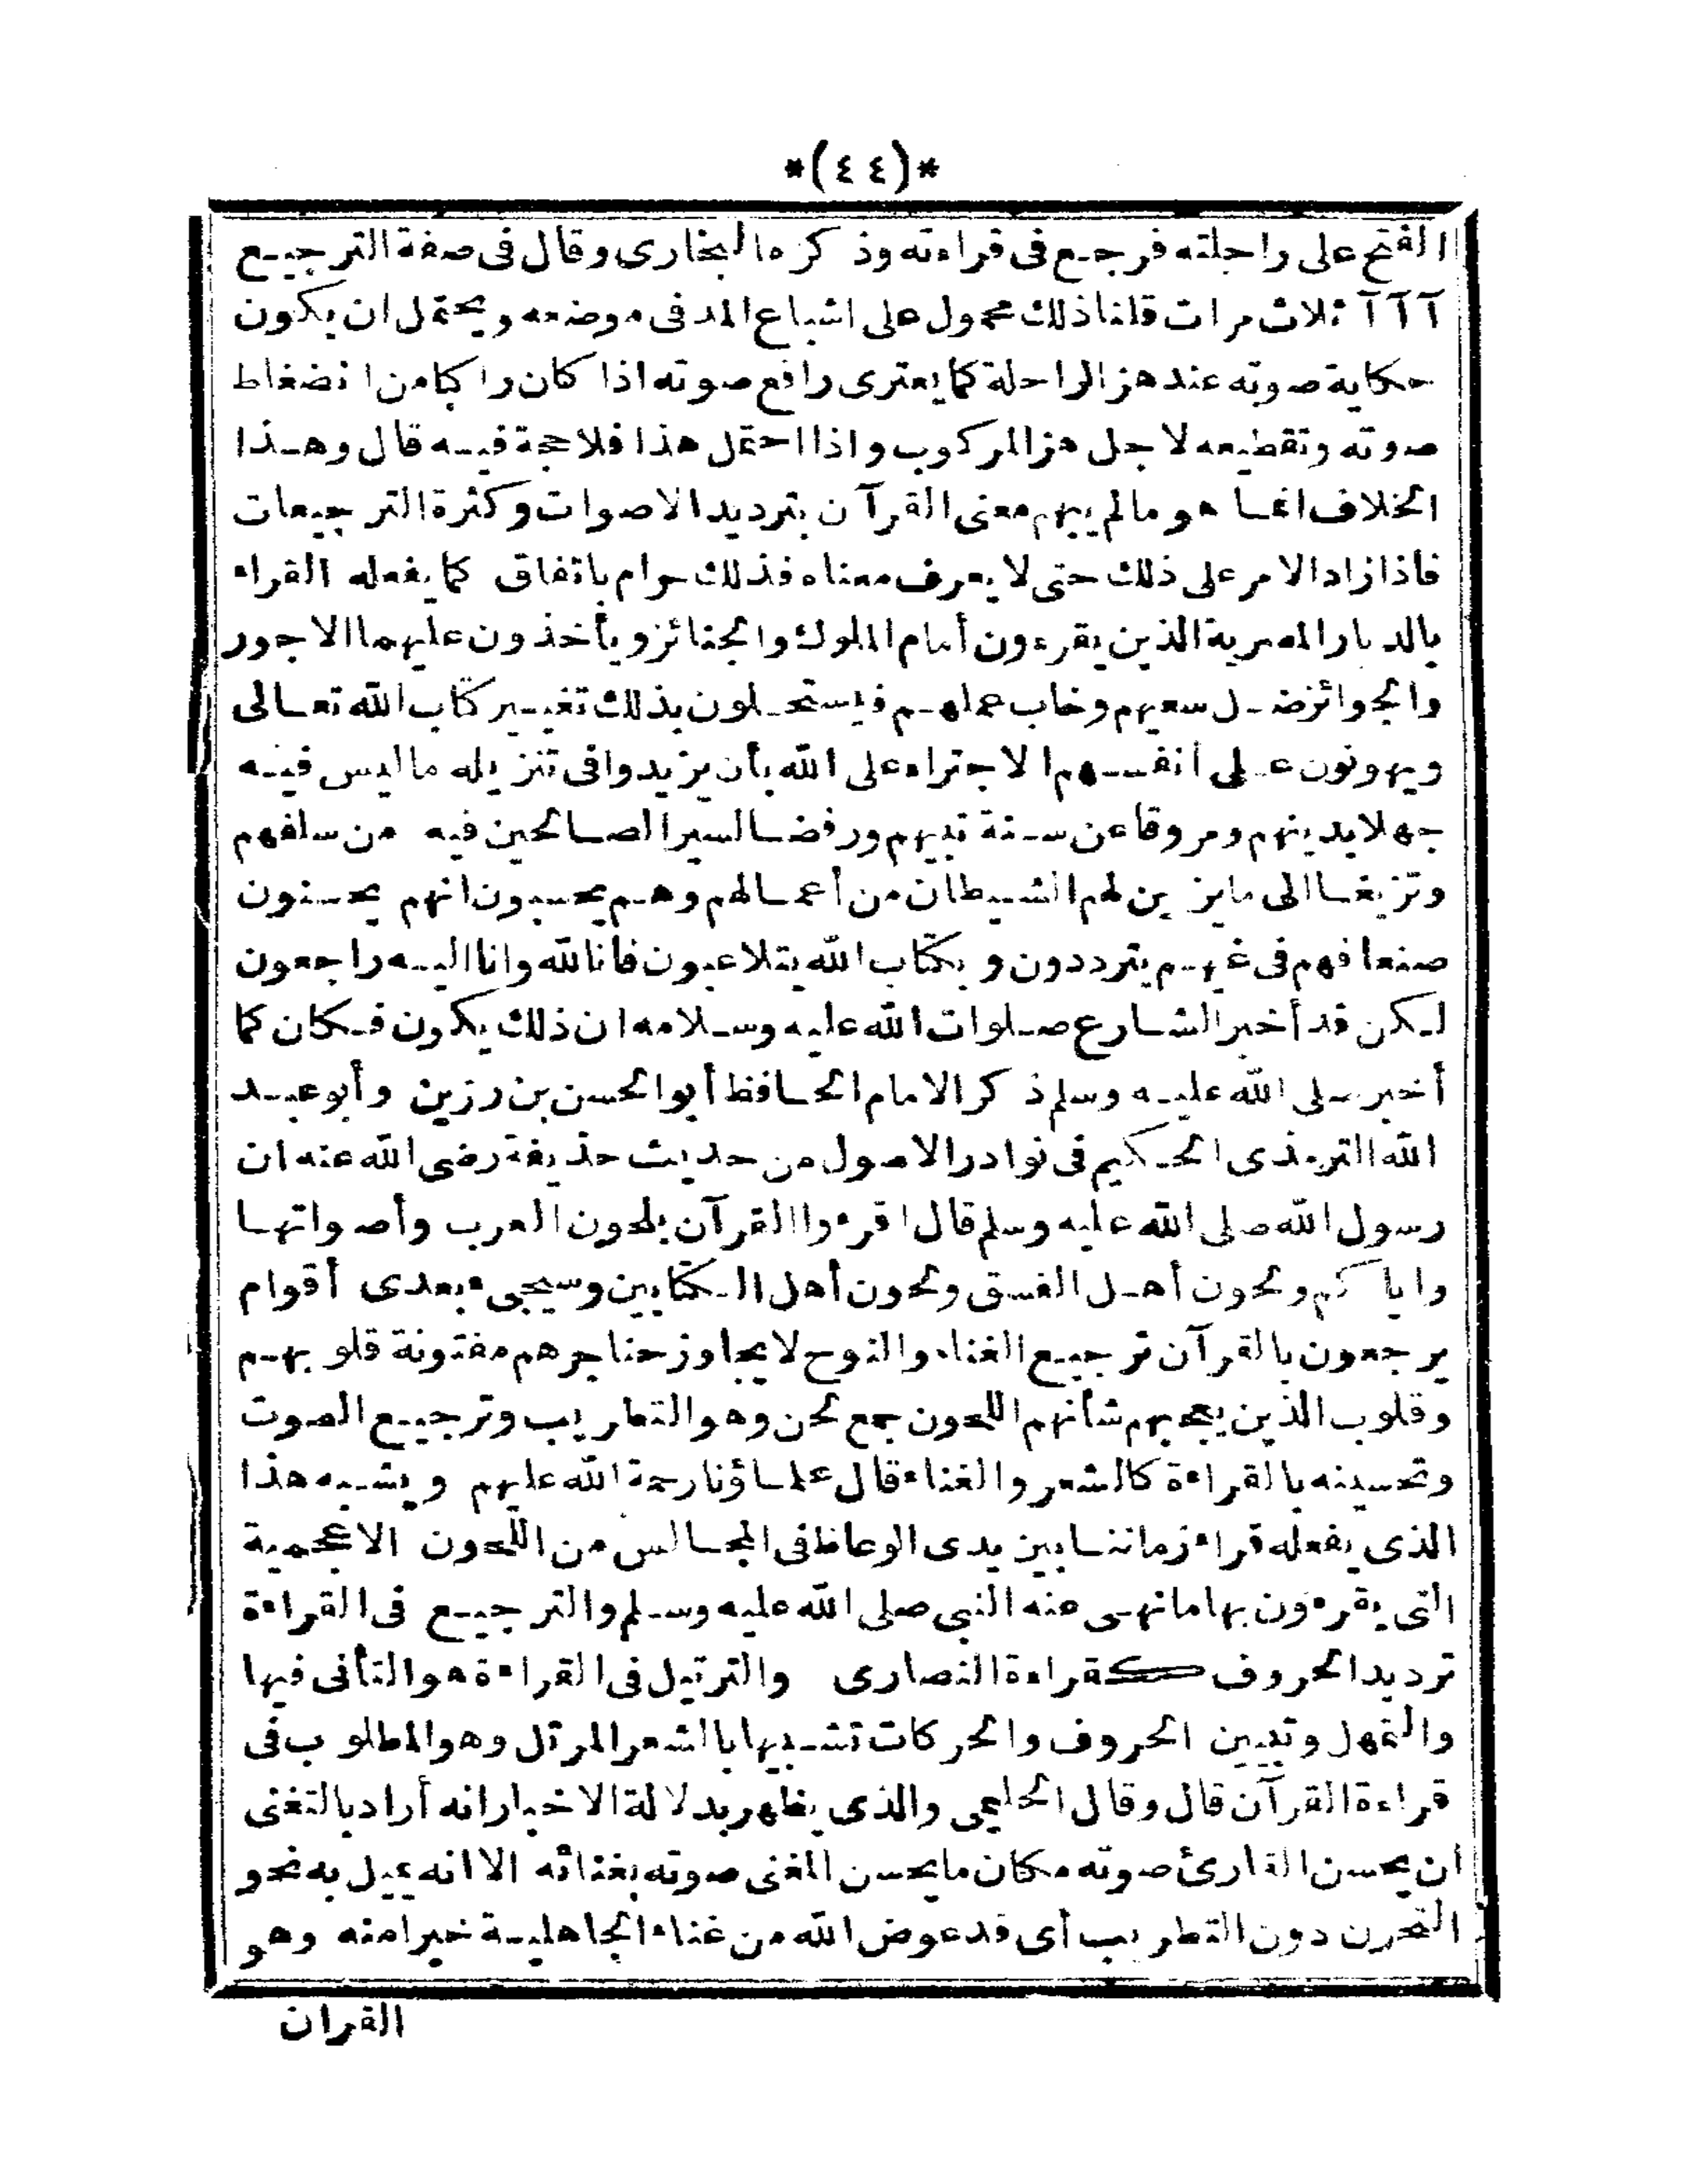 *(٤٤)*
الفتح على راحلته فرجع فى قراءته وذكره البخارى وقال فى صفة الترجيع
آ آ آ ثلاث مرات قلنا ذلك محمول على اشباع المد فى موضعه ويحتمل ان يكون
حكاية صوته عند هز الراحلة كما يعترى رافع صوته اذا كان راكبا من انضغاط
صوته وتقطيعه لاجل هز المركوب واذا احتمل هذا فلا حجة فيه قال وهذا
الخلاف انما هو مالم يبهم معنى القرآن بترديد الاصوات وكثرة الترجيعات
فاذا زاد الامر على ذلك حتى لا يعرف معناه فذلك حرام باتفاق كما يفعله القراء
بالديار المصرية الذين يقرءون أمام الملوك والجنائز ويأخذون عليها الاجور
والجوائز ضل سعيهم وخاب عملهم فيستحلون بذلك تغيير كتاب الله تعالى
ويهونون على أنفسهم الاجتراء على الله بأن يزيدوا فى تنزيله ما ليس فيه
جهلا بدينهم ومروقا عن سنة نبيهم ورفضا لسير الصالحين فيه من سلفهم
وتزيغا الى ما يزين لهم الشيطان من أعمالهم وهم يحسبون انهم يحسنون
صنعا فهم فى غيهم يترددون وبكتاب الله يتلاعبون فانا لله وانا اليه راجعون
لكن قد أخبر الشارع صلوات الله عليه وسلامه ان ذلك يكون فكان كما
أخبر صلى الله عليه وسلم ذكر الامام الحافظ أبو الحسن بن رزين وأبو عبد
الله الترمذى الحكيم فى نوادر الاصول من حديث حذيفة رضى الله عنه ان
رسول الله صلى الله عليه وسلم قال اقرءوا القرآن بلحون العرب وأصواتها
واياكم ولحون أهل الفسق ولحون أهل الكتابين وسيجىء بعدى أقوام
يرجعون بالقرآن ترجيع الغناء والنوح لا يجاوز حناجرهم مفتونة قلوبهم
وقلوب الذين يعجبهم شأنهم اللحون جمع لحن وهو التطريب وترجيع الصوت
وتحسينه بالقراءة كالشعر والغناء قال علماؤنا رحمة الله عليهم ويشبه هذا
الذى يفعله قراء زماننا بين يدى الوعاظ فى المجالس من اللحون الاعجمية
التى يقرءون بها ما نهى عنه النبى صلى الله عليه وسلم والترجيع فى القراءة
ترديد الحروف كقراءة النصارى والترتيل فى القراءة هو التأنى فيها
والتمهل وتبيين الحروف والحركات تشبيها بالشعر المرتل وهو المطلوب فى
قراءة القرآن قال وقال الحليمى والذى يظهر بدلالة الاخبار انه أراد بالتغنى
ان يحسن القارئ صوته مكان ما يحسن المغنى صوته بغنائه الا انه يميل به نحو
التحزن دون التطريب أى قد عوض الله من غناء الجاهلية خيرا منه وهو
القران